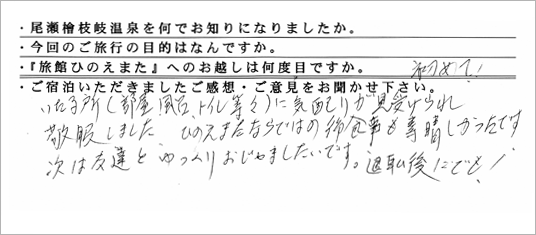 ・尾瀬檜枝岐温泉を何でお知りになりましたか。
・今回のご旅行の目的はなんですか。
・『旅館ひのえまた』へのお越しは何度目ですか。 初めて!
・ご宿泊いただきましたご感想・ご意見をお聞かせ下さい。
いたる所(部屋、風呂、トイレ等々)に気配りが見受けられ
敬服しました ひのえまたならではの御食事も素晴しかったです
次は友達とゆっくりおじゃましたいです。退職後にでも!